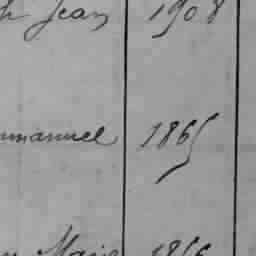 Jean 1908
mmanuel 1865
Marie 1866